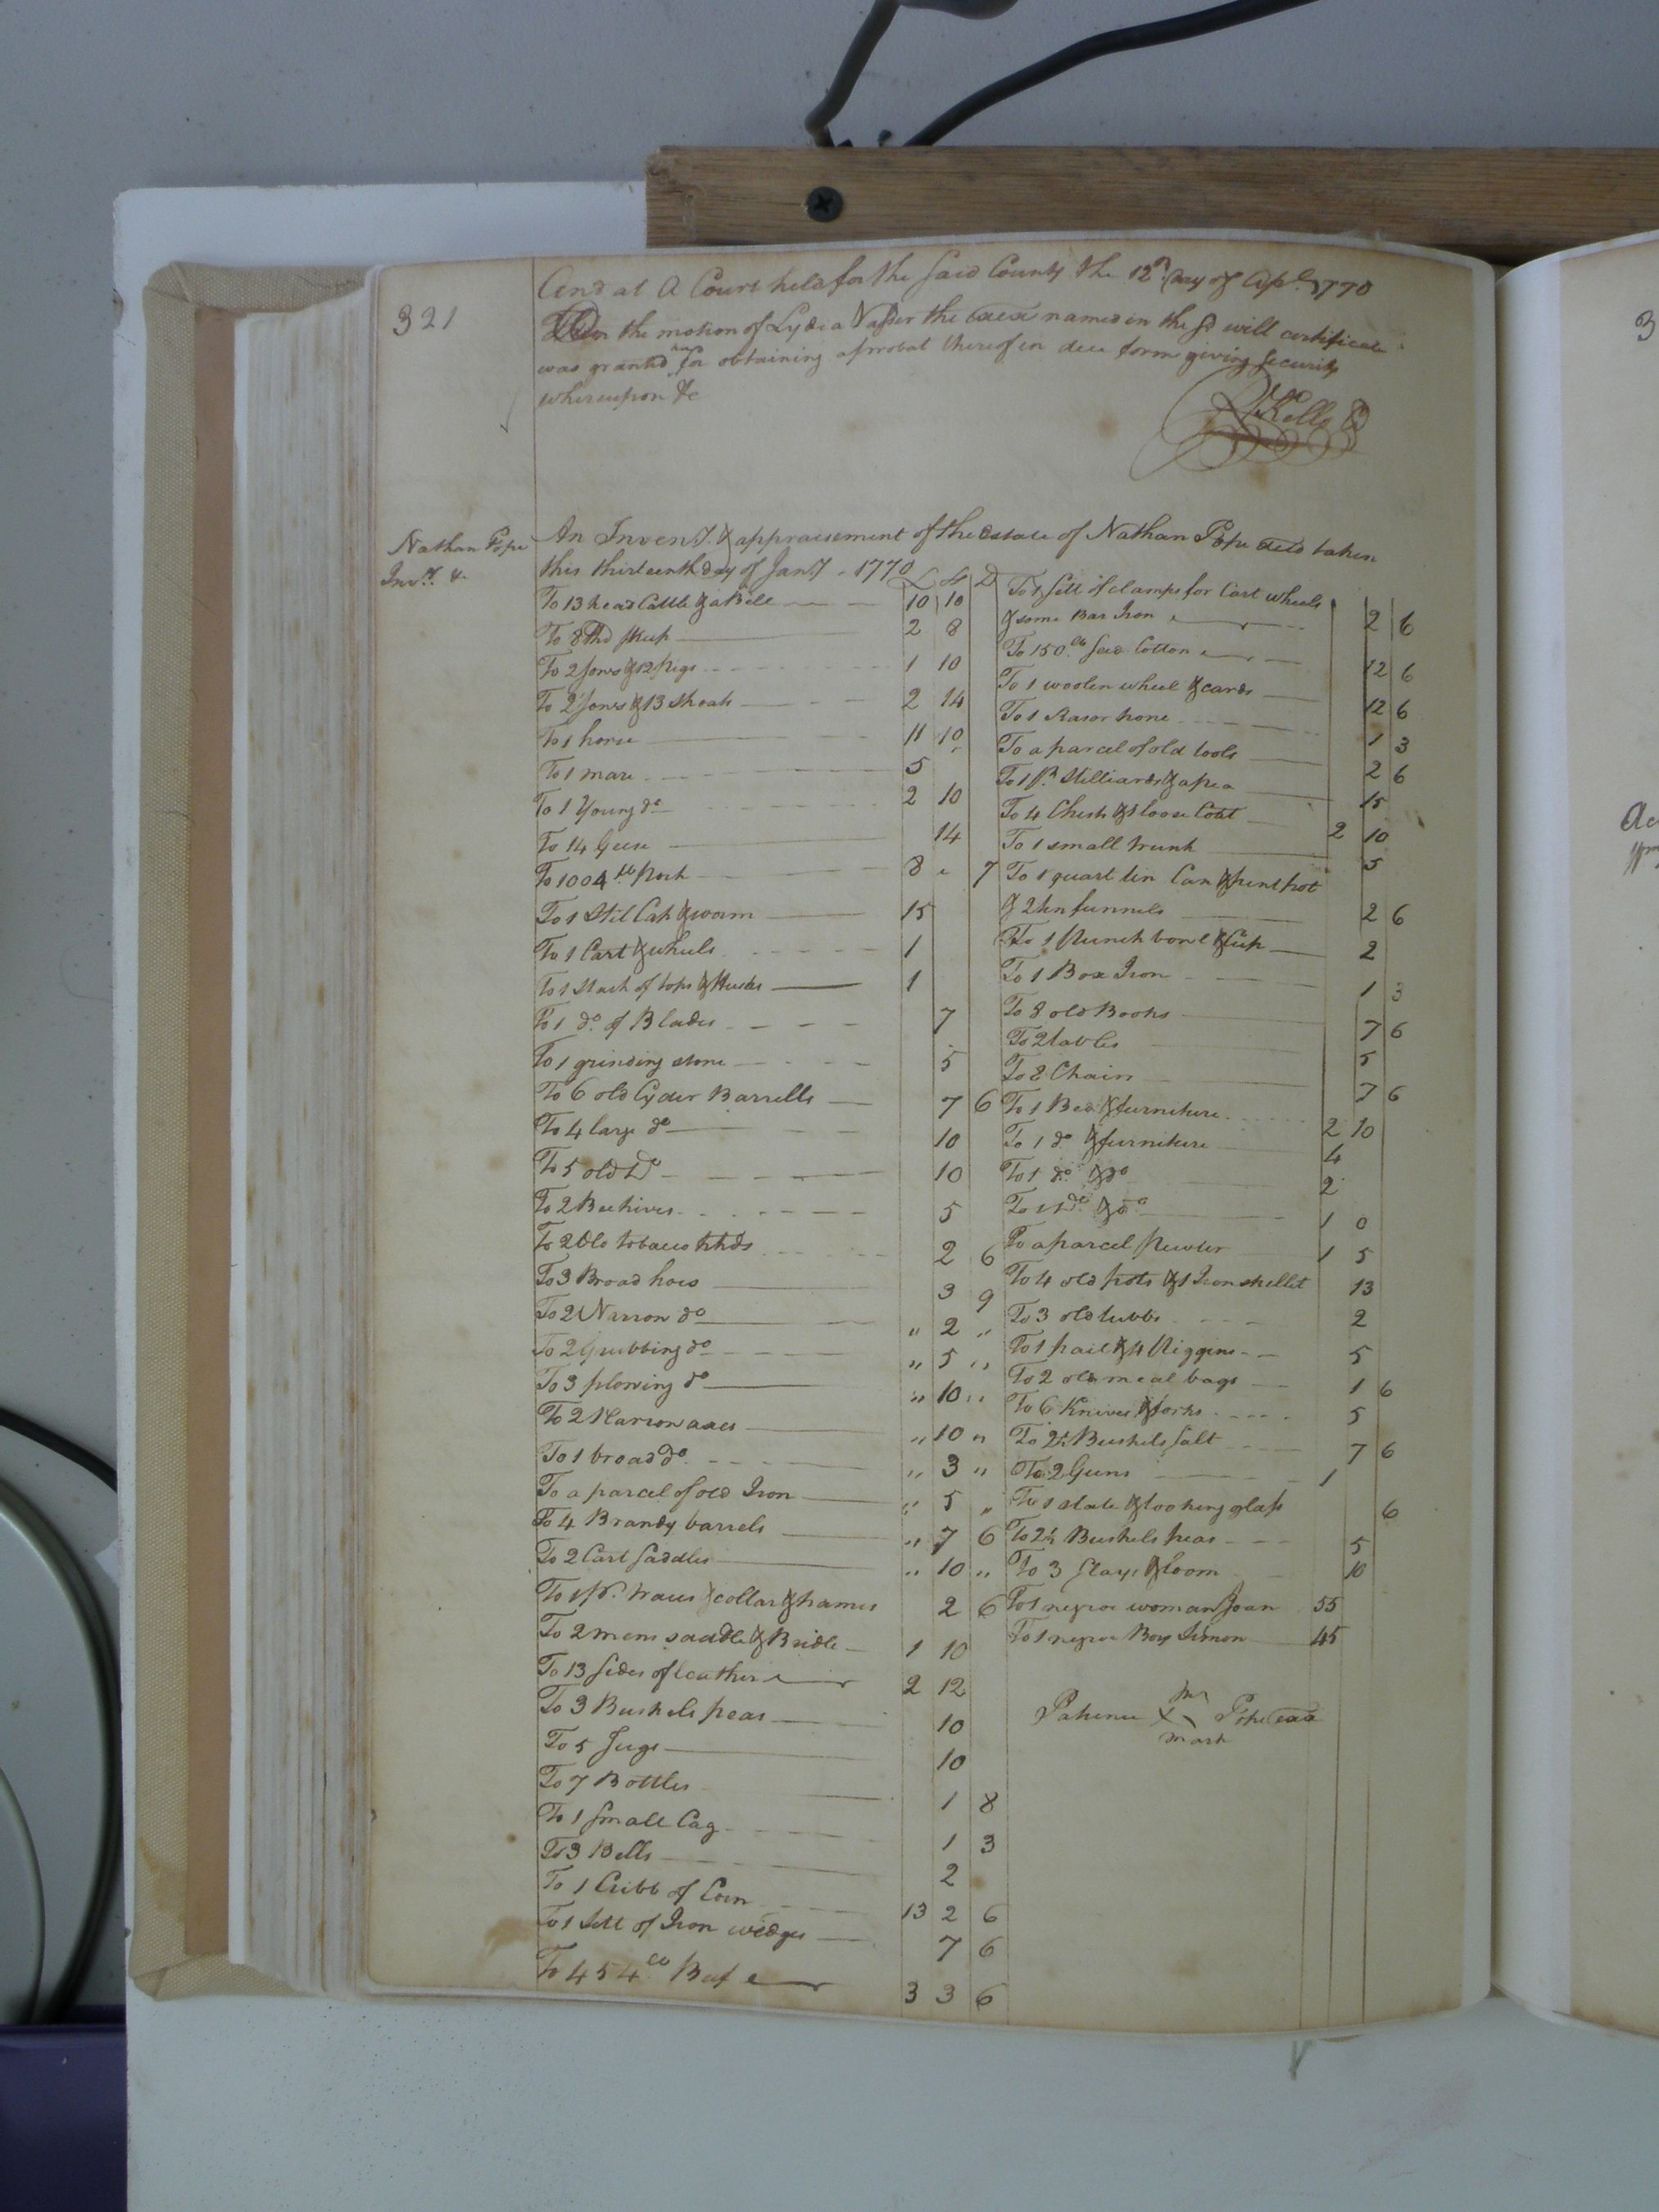 321
And at A Court held for the said County the 12th Day of Apl. 1770
On the motion of Lydia Vasser the Exex named in the sd will certificate
was granted her for obtaining a probat thereof in due form giving security
whereupon &c
Kello
Nathan Pope
Invy. &.
An Inventy. & appraisement of the Estate of Nathan Pope decd taken
this thirteenth day of Jany. 1770
£ S D
To 13 head Cattle & a Bell 10 10
To 8 Hd sheep 2 8
To 2 Sows & 12 pigs 1 10
To 2 Sows & 13 Shoats 2 14
To 1 horse 11 10
To 1 mare 5
To 1 Young do 2 10
To 14 Geese 14
To 1004 lb Pork 8 " 7
To 1 Still Cap & worm 15
To 1 Cart & wheels 1
To 1 Stack of tops & Husks 1
To 1 do. of Blades 7
To 1 grinding stone 5
To 6 old Cyder Barrells 7 6
To 4 large do 10
To 5 old Do 10
To 2 Bee hives 5
To 2 Old tobacco hhds 2 6
To 3 Broad hoes 3 9
To 2 Narrow do " 2 "
To 2 Grubbing do " 5 "
To 3 plowing do " 10 "
To 2 Narrow axes " 10 "
To 1 broad do. " 3 "
To a parcel of old Iron " 5 "
To 4 Brandy barrels " 7 6
To 2 Cart Saddles " 10 "
To 1 pr. traces & collar & hames 2 6
To 2 mens saddle & Bridle 1 10
To 13 sides of leather 2 12
To 3 Bushels peas 10
To 5 Jugs 10
To 7 Bottles 1 8
To 1 small Cag 1 3
To 3 Bells 2
To 1 Cribb of Corn 13 2 6
To 1 Sett of Iron wedges 7 6
To 454 lb Beef 3 3 6
To 1 Sett of clamps for Cart wheels
& some Bar Iron 2 6
To 150 lb seed Cotton 12 6
To 1 woolen wheel & cards 12 6
To 1 Rasor hone 1 3
To a parcel of old tools 2 6
To 1 pr. Stilliards & a pea 15
To 4 Chests & 1 loose 2 10
To 1 small trunk 5
To 1 quart tin Can & pint pot
& 2 tin funnels 2 6
To 1 Punch bowl & Cup 2
To 1 Box Iron 1 3
To 8 old Books 7 6
To 2 tables 5
To 8 Chairs 7 6
To 1 Bed & furniture 2 10
To 1 do & furniture 4
To 1 do. & do 2
To 1 Do. & do 1 0
To a parcel Pewter 1 5
To 4 old pots & 1 Iron skellet 13
To 3 old tubbs 2
To 1 pail & 4 Piggins 5
To 2 old meal bags 1 6
To 6 Knives & forks 5
To 2½ Bushels Salt 7 6
To 2 Guns 1
To 1 slate & looking glass 6
To 2½ Bushels peas 5
To 3 Slays & loom 10
To 1 negroe woman Joan 55
To 1 negroe Boy Simon 45
Patience X Pope exx
mark